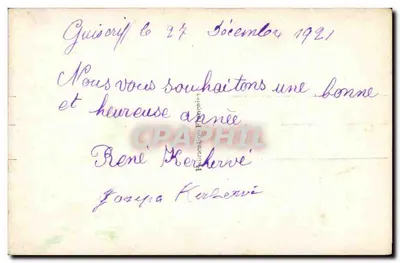 Guiscriff le 27 Décembre 1921
Nous vous souhaitons une bonne
et heureuse année
CPAPHIL
René Kerhervé
Josepa Kerhervé